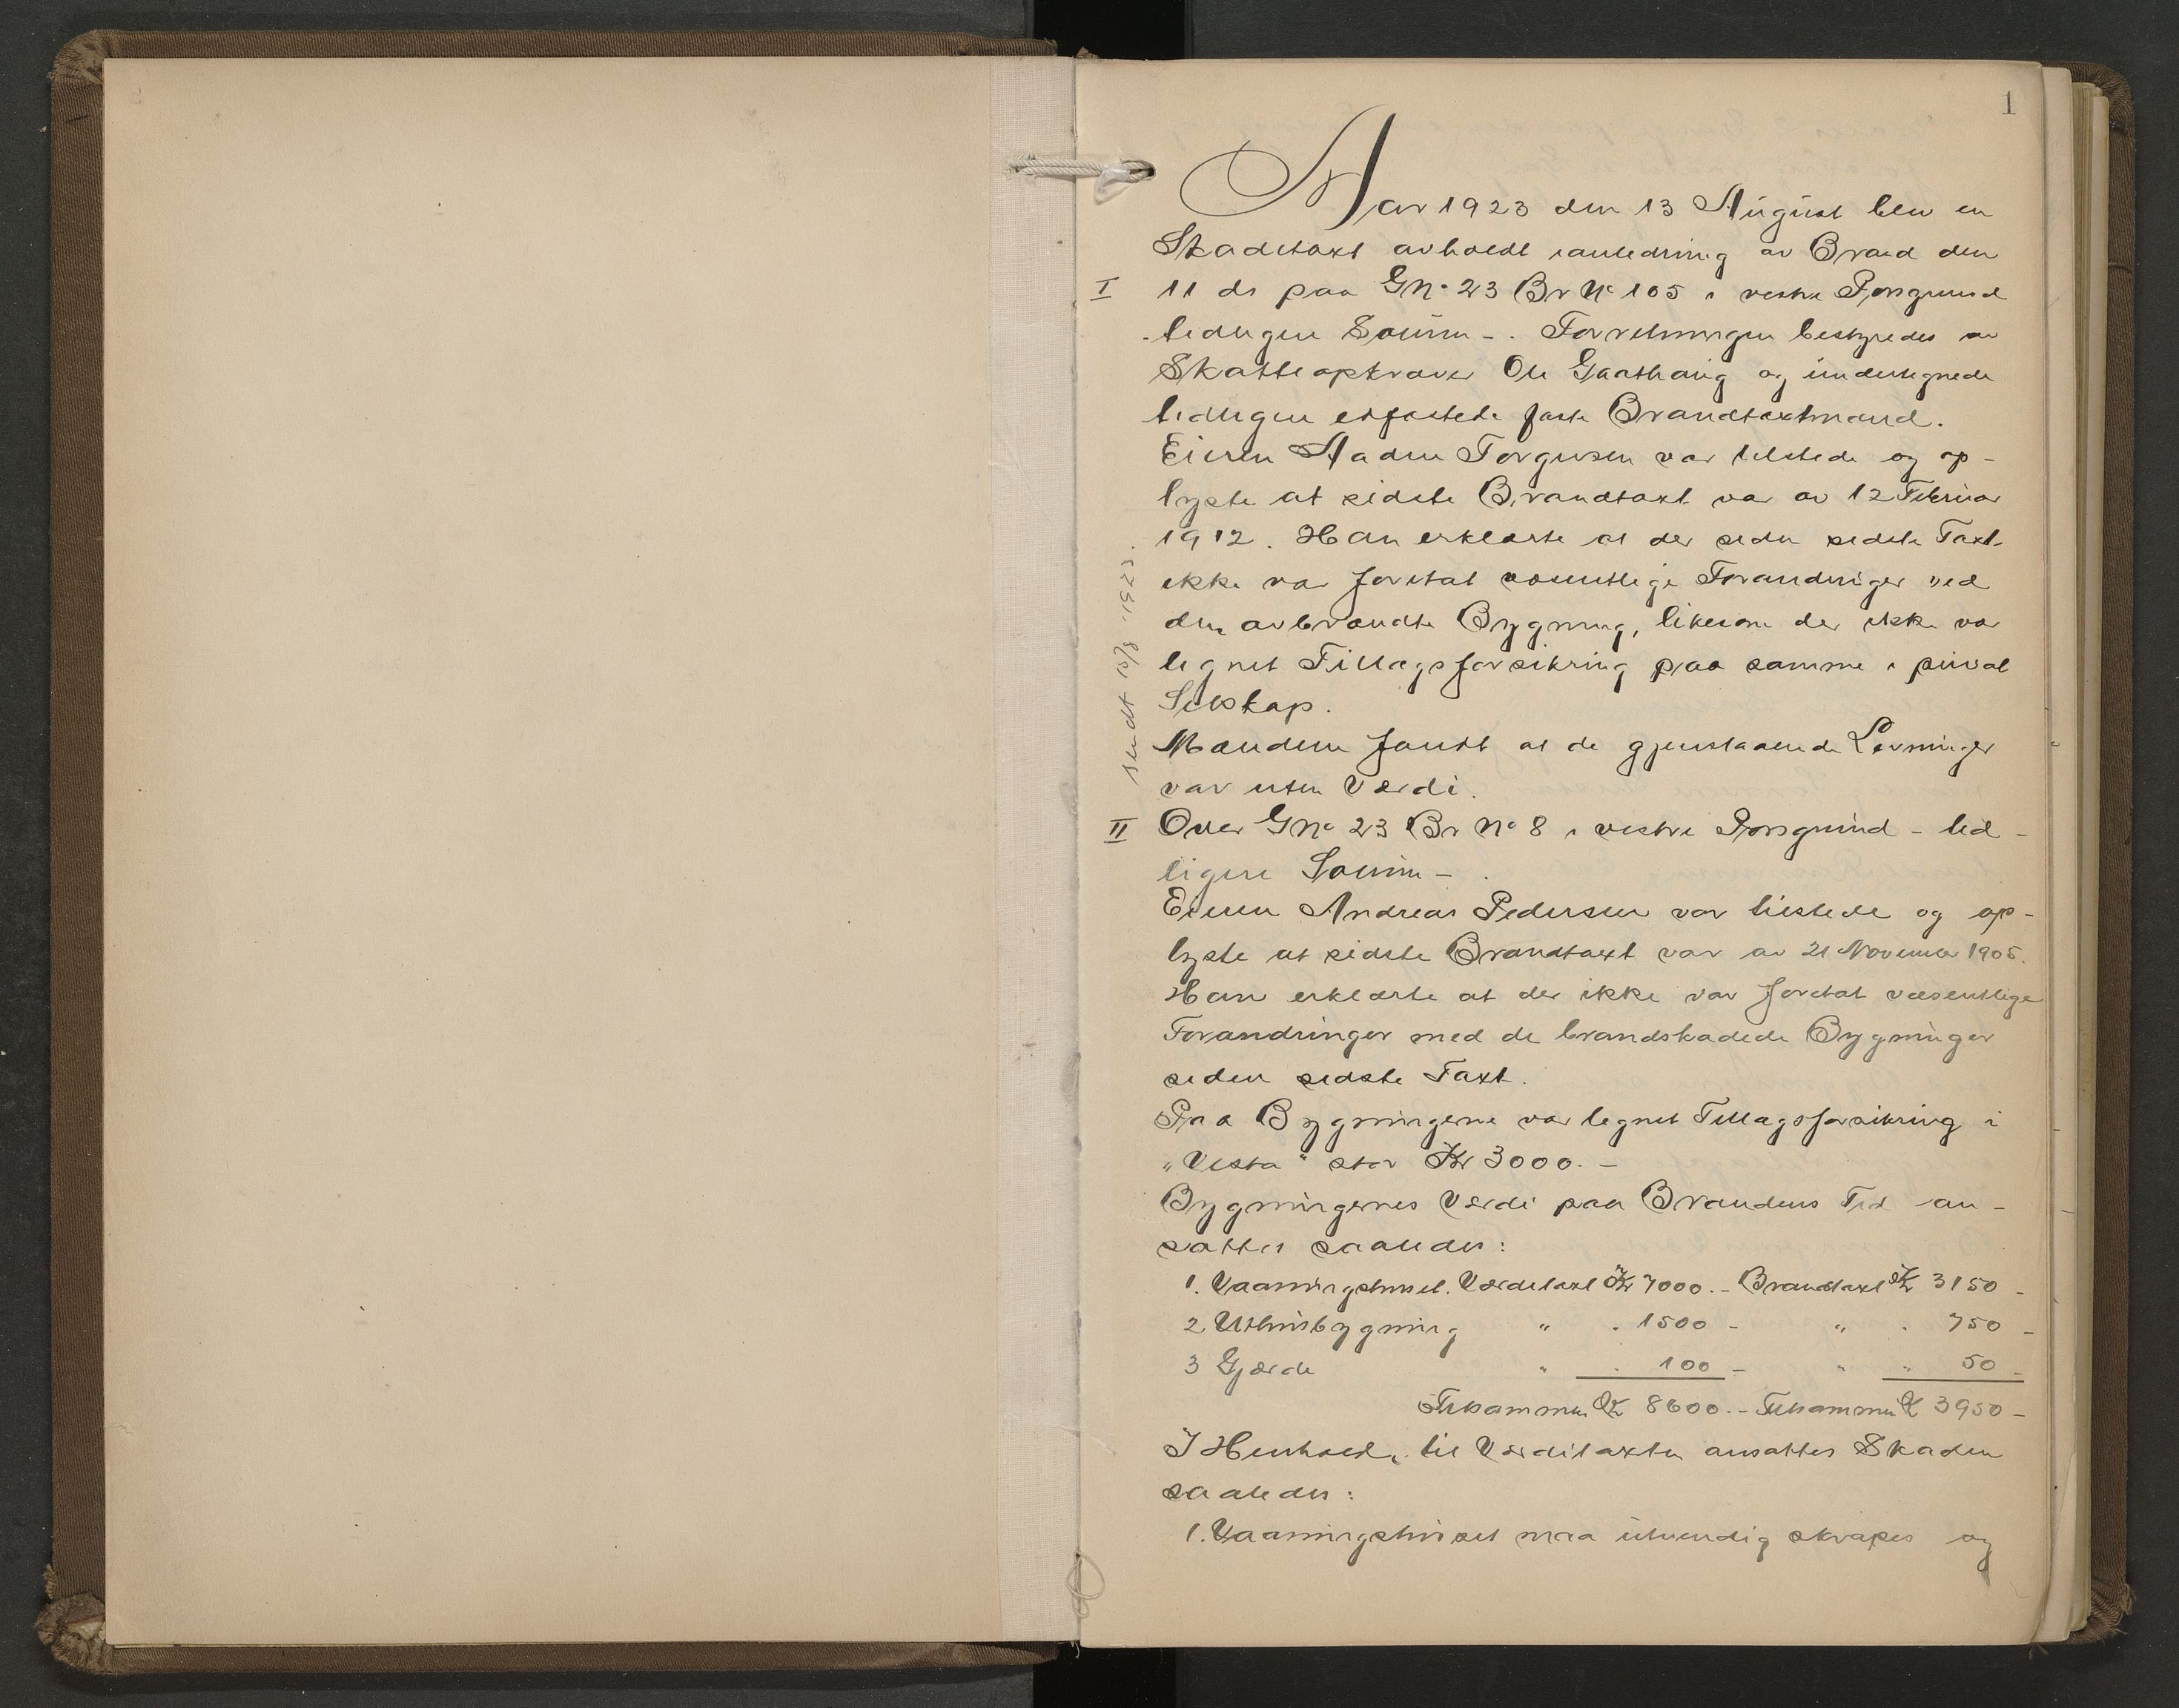 1
Aar 1923 den 13 August blev en
Skadetaxt avholdt ianledning av Brand den
I 11 ds paa Gno 23 Br No 105 i vestre Porsgrund
lidligere Solum -. Forretningen bestyredes av
Skatteopkræver Ole Gaasthaug og undertegnede
lidligere edfæstede faste Brandtaxtmænd.
Eieren Aadne Torgersen var tilstede og op-
lyste at sidste Brandtaxt var av 12 Februar
1912. Han erklærte at der siden sidste Taxt
ikke var foretat væsentlige Forandringer ved
den avbrændte Bygning, likesom der ikke var
tegnet Tillægsforsikring paa samme i privat
Selskap.
Mændene fandt at de gjenstaaende Levninger
var uten Værdi.
sendt 15/8 1923.
II Over Gno 23 Br No 8 i vestre Porsgrund - tid-
ligere Solum - .
Eieren Andreas Pedersen var tilstede og op-
lyste at sidste Brandtaxt var av 21 November 1905.
Han erklærte at der ikke var foretat væsentlige
Forandringer med de brandskadede Bygninger
siden sidste Taxt.
Paa Bygningerne var tegnet Tillægsforsikring i
"Vesta" stor Kr 3000.-
Bygningernes Værdi paa Brandens Tid an-
sattes saaledes:
1. Vaaningshuset. Værditaxt Kr 7000.- Brandtaxt Kr 3150 -
2 Uthusbygning " . 1500 - " . 750 -
3 Gjærde " . 100 - " " 50 -
Tilsammen Kr 8600.- Tilsammen Kr 3950 -
I Henhold til Værditaxten ansattes Skaden
saaledes:
1. Vaaningshuset maa utvendig skrapes og